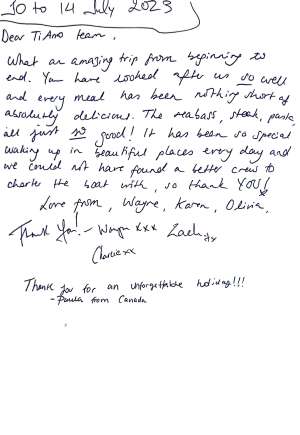 10 to 14 July 2023
Dear TiAmo team,
What an amazing trip from beginning to
end. You have looked after us so well
and every meal has been nothing short of
absolutely delicious. The seabass, steak, pasta,
all just so good! It has been so special
waking up in beautiful places every day and
we could not have found a better crew to
charter the boat with, so thank YOU!
Love from, Wayne, Karen, Olivia,
Thank You! - Wayne xxx Zach xx
Charlie xx
Thank you for an unforgettable holiday!!!
- Paula from Canada